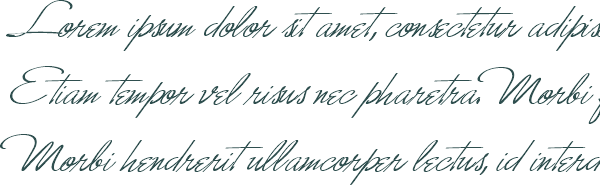 Lorem ipsum dolor sit amet, consectetur adipis
Etiam tempor vel risus nec pharetra. Morbi
Morbi hendrerit ullamcorper lectus, id interd